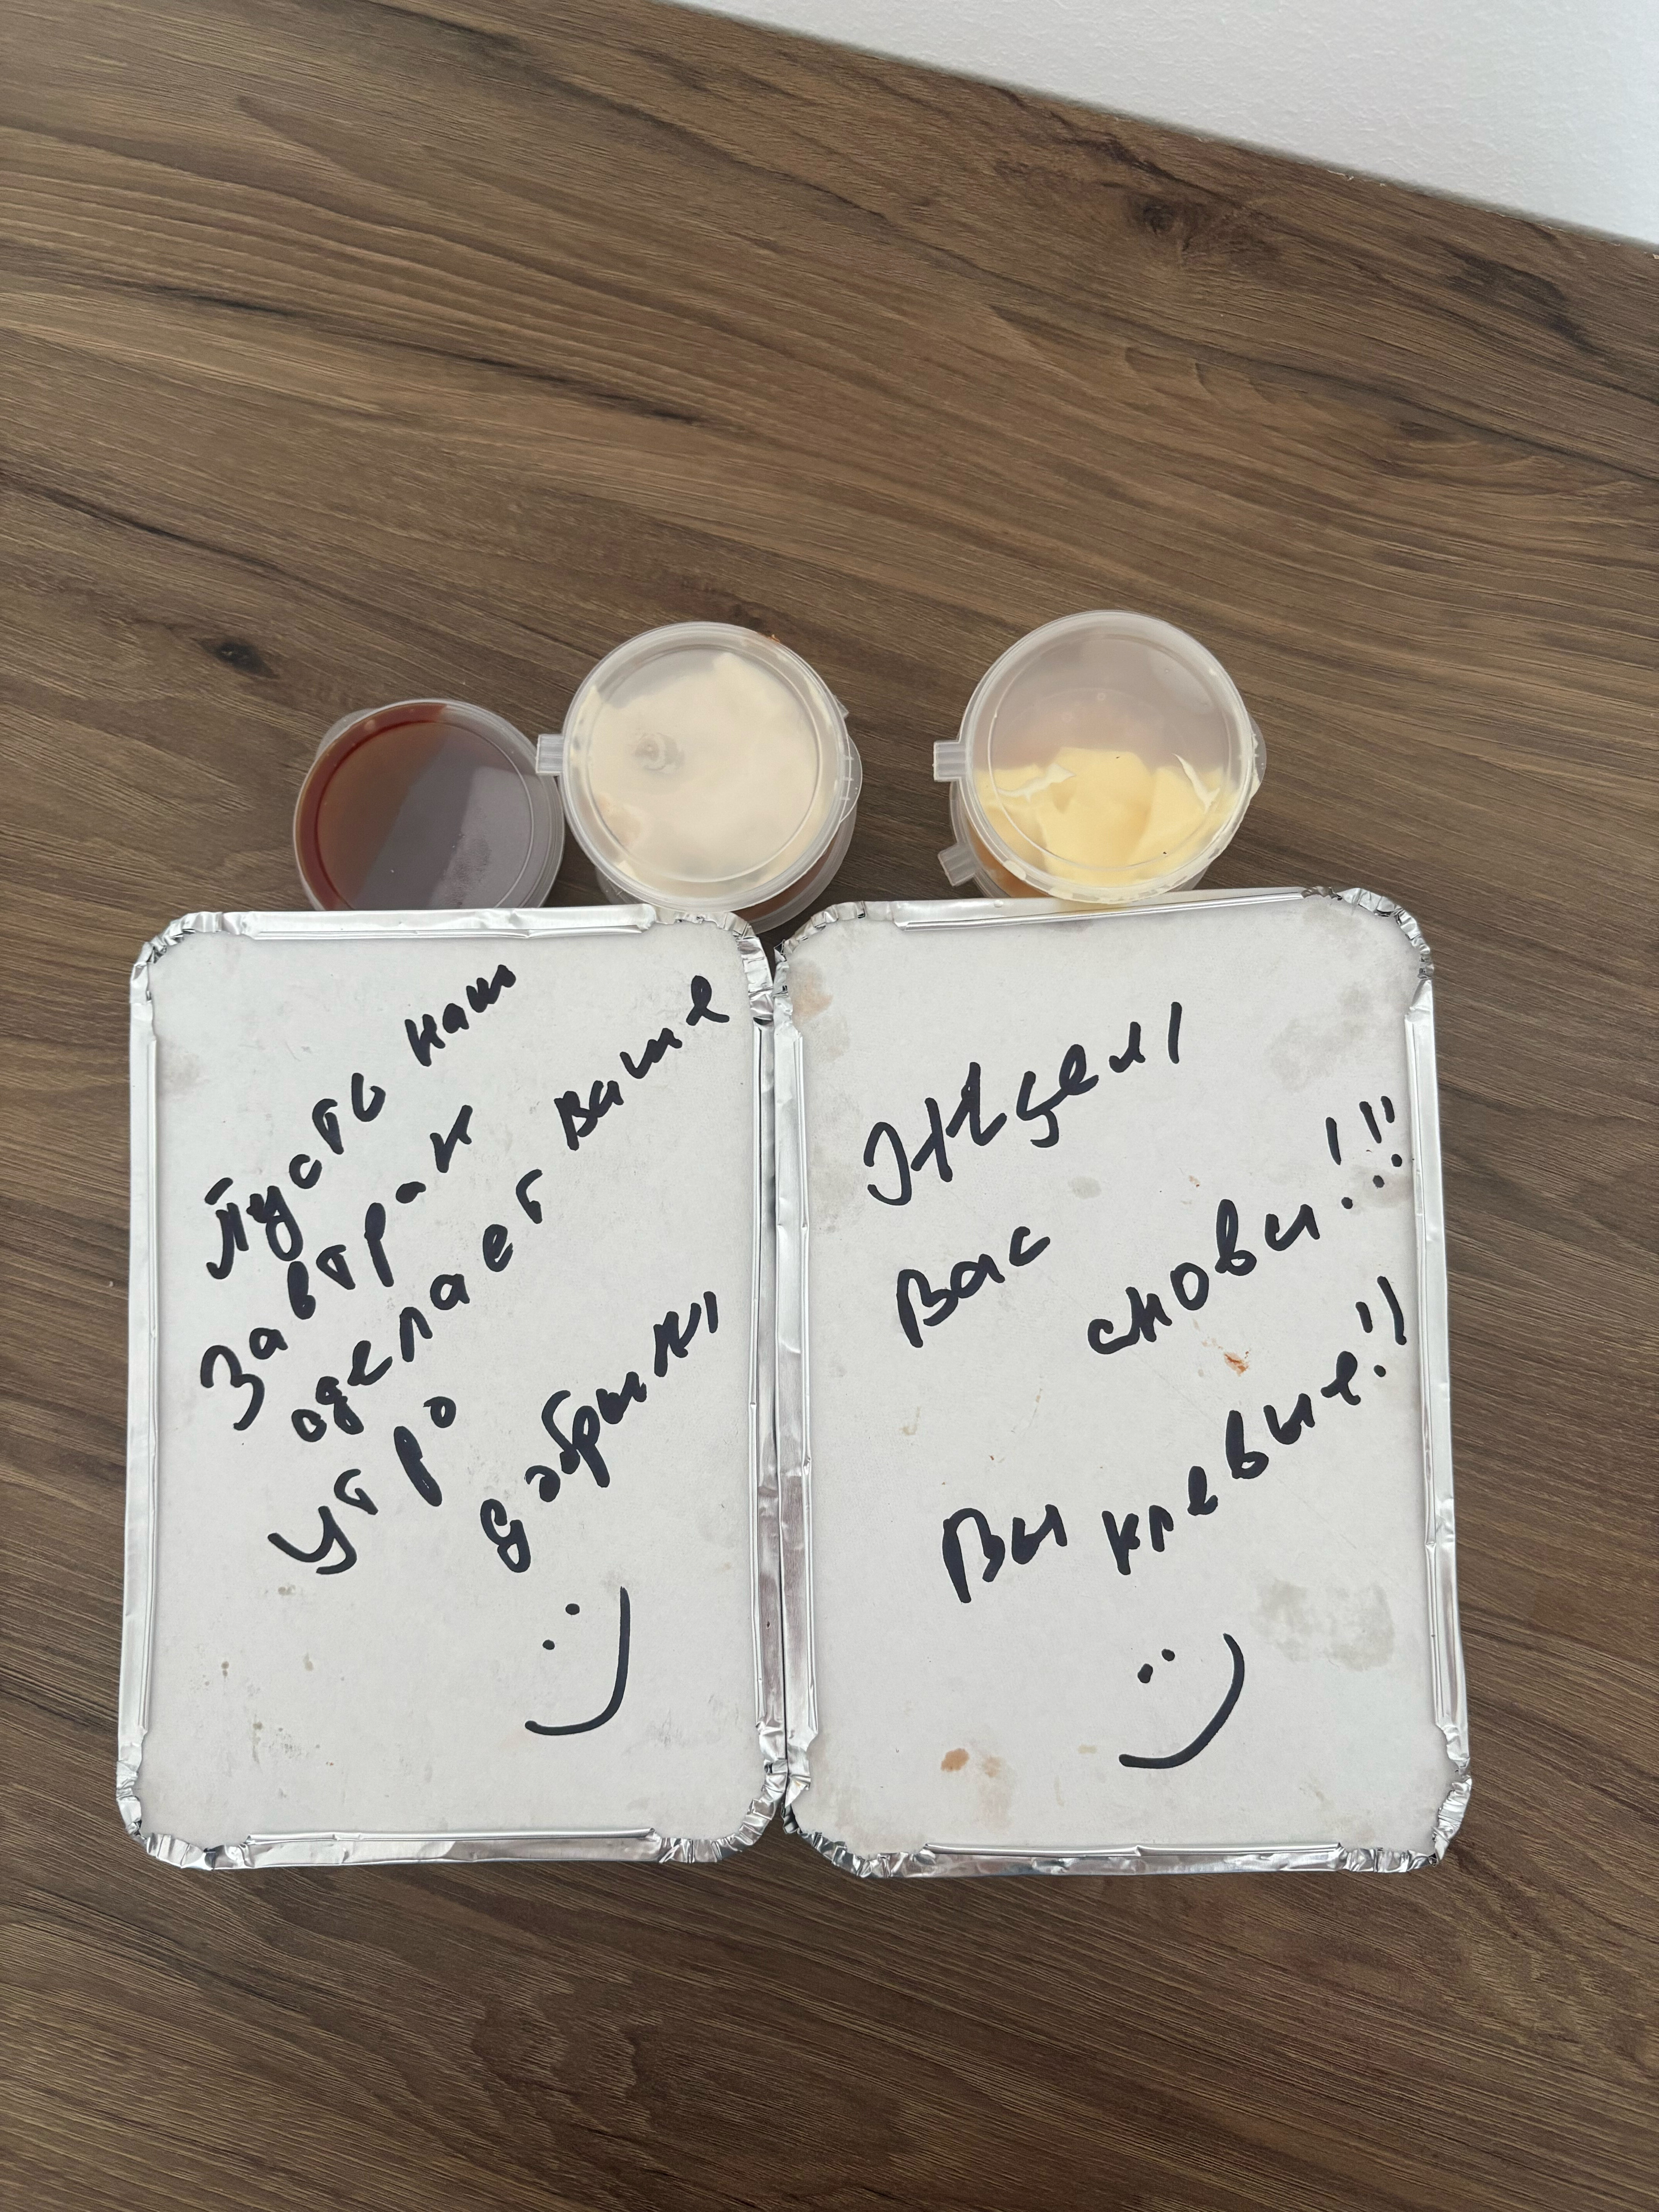 Пусть наш
завтрак
сделает ваше
утро
добрым
:)
Ждем!
Вас
снова!!!
Вы клевые!!
:)